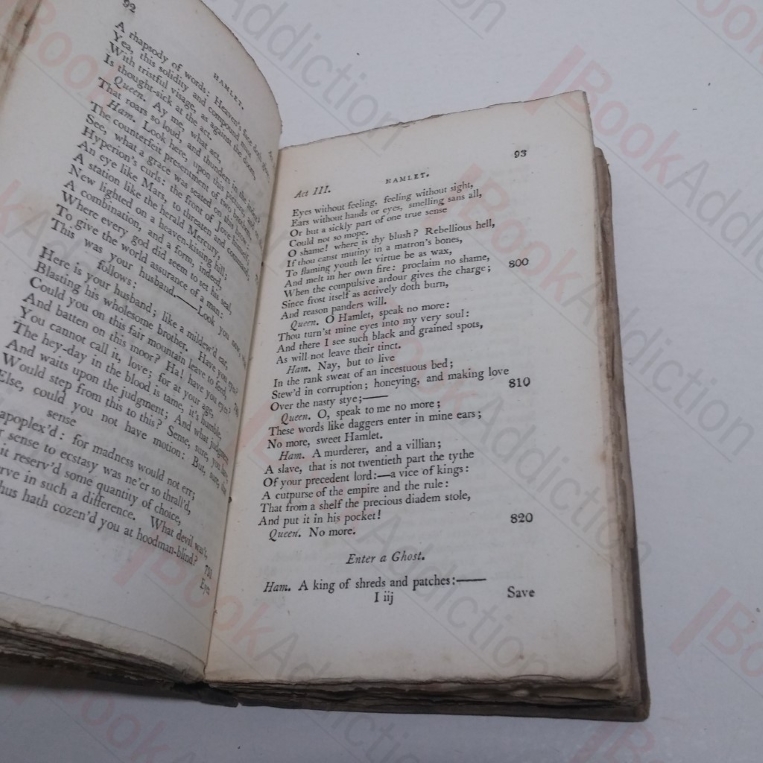 92
HAMLET.
A rhapsody of words: Heaven's face doth
Yea, this solidity and compound
With tristful visage, as against the
Is thought-sick at the act.
Queen. Ay me, what act,
That roars so loud, and thunders in the
Ham. Look here, upon this picture,
The counterfeit presentment of two
See, what a grace was seated on
Hyperion's curls: the front of Jove
An eye like Mars, to threaten and command
A station like the herald Mercury,
New lighted on a heaven-kissing hill;
A combination, and a form, indeed,
Where every god did seem to set his seal,
To give the world assurance of a man:
This was your husband.—Look you now
follows:
Here is your husband; like a mildew'd ear,
Blasting his wholesome brother. Have you eyes?
Could you on this fair mountain leave to feed,
And batten on this moor? Ha! have you eyes?
You cannot call it, love; for at your age,
The hey-day in the blood is tame, it's humble,
And waits upon the judgment; And what judgment
Would step from this to this? Sense, sure, you
Else, could you not have motion: But, sure,
sense
apoplex'd: for madness would not err;
sense to ecstasy was ne'er so thrall'd,
it reserv'd some quantity of choice,
rve in such a difference. What devil was't,
hus hath cozen'd you at hoodman-blind?
Eyes
93
HAMLET.
Act III.
Eyes without feeling, feeling without sight,
Ears without hands or eyes, smelling sans all,
Or but a sickly part of one true sense
Could not so mope.
O shame! where is thy blush? Rebellious hell,
If thou canst mutiny in a matron's bones,
To flaming youth let virtue be as wax,
And melt in her own fire: proclaim no shame, 800
When the compulsive ardour gives the charge;
Since frost itself as actively doth burn,
And reason panders will.
Queen. O Hamlet, speak no more:
Thou turn'st mine eyes into my very soul:
And there I see such black and grained spots,
As will not leave their tinct.
Ham. Nay, but to live
In the rank sweat of an incestuous bed;
Stew'd in corruption; honeying, and making love 810
Over the nasty stye;——
Queen. O, speak to me no more;
These words like daggers enter in mine ears;
No more, sweet Hamlet.
Ham. A murderer, and a villian;
A slave, that is not twentieth part the tythe
Of your precedent lord:—a vice of kings:
A cutpurse of the empire and the rule:
That from a shelf the precious diadem stole,
And put it in his pocket! 820
Queen. No more.
Enter a Ghost.
Ham. A king of shreds and patches:——
I iij
Save
BookAddiction